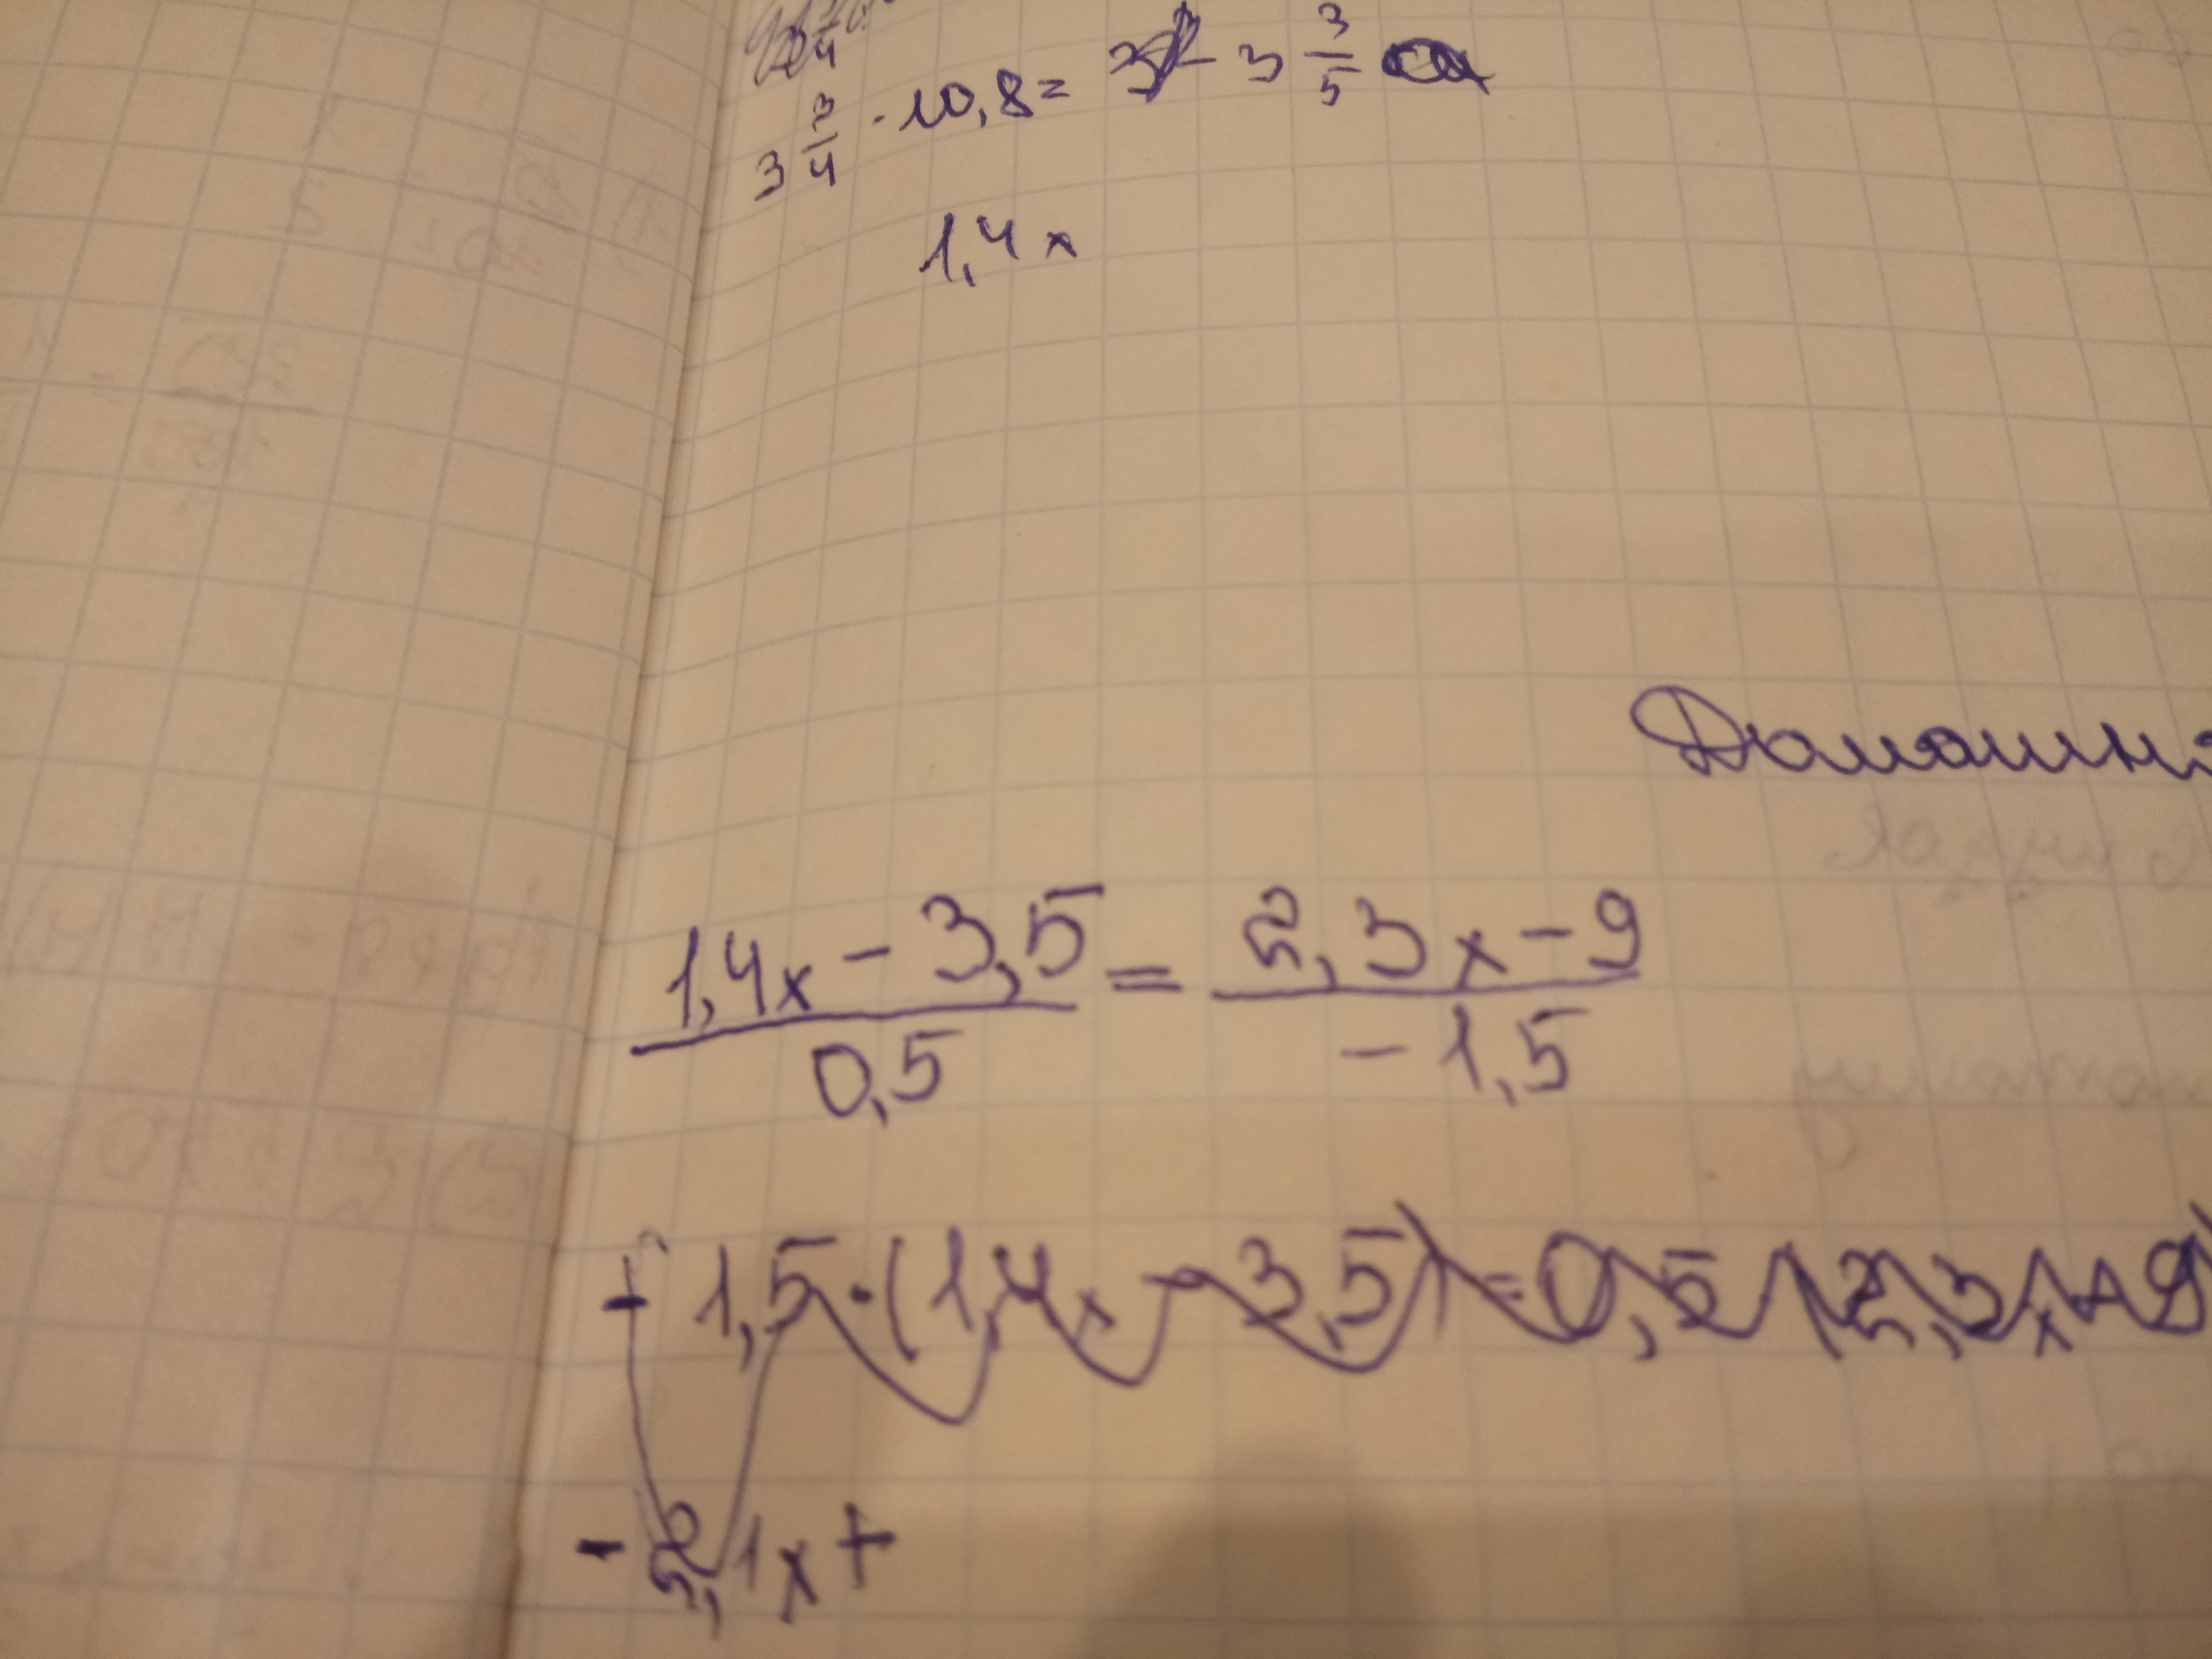 3 3/4 · 10,8 = 3 3/5
1,4x
Домашн
(1,4x - 3,5)/0,5 = (2,3x - 9)/(-1,5)
- 1,5 · (1,4x - 3,5) = 0,5 (2,3x - 9)
- 2,1x +